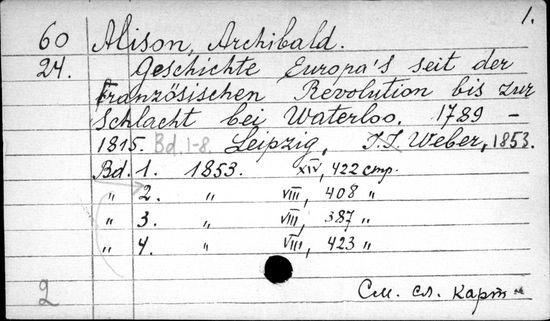 1.
60 Alison, Archibald.
24. Geschichte Europa's seit der
französischen Revolution bis zur
Schlacht bei Waterloo. 1789 –
1815. Bd. 1-8. Leipzig, J.J. Weber, 1853.
Bd. 1. 1853. XIV, 422 стр.
„ 2. „ VIII, 408 „
„ 3. „ VIII, 387 „
„ 4. „ VIII, 423 „
2 См. сл. карт.